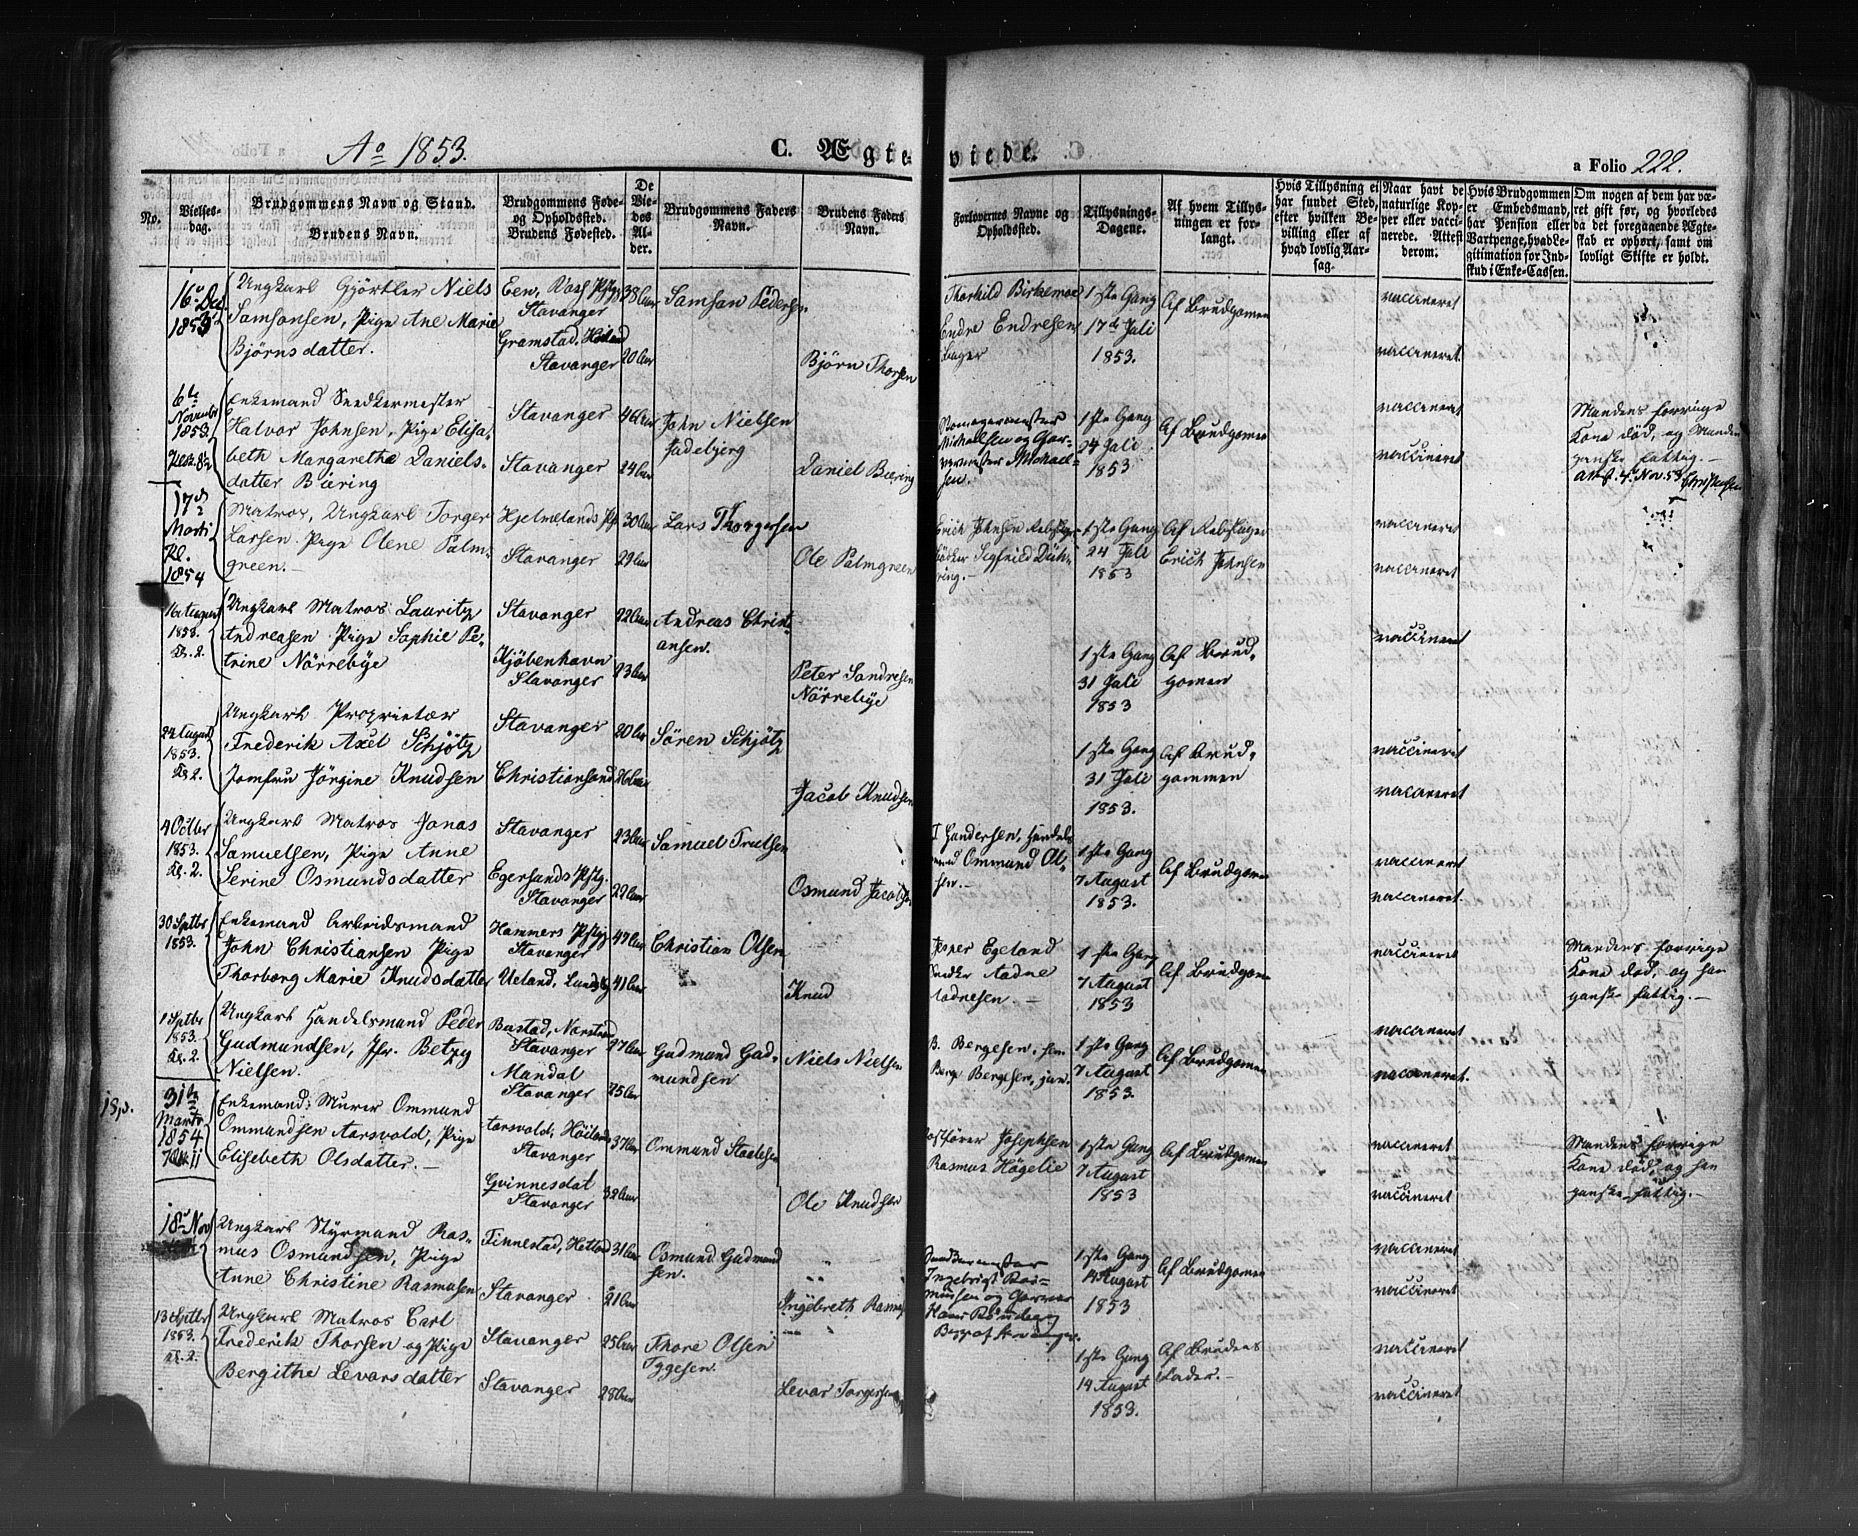 Ao 1853.
C. Ægteviede.
a Folio 222.
No.
Vielses-
dag.
Brudgommens Navn og Stand.
Brudens Navn.
Brudgommens Føde-
og Opholdssted.
Brudens Fødested.
De
Vie-
des
Al-
der.
Brudgommens Faders
Navn.
Brudens Faders
Navn.
Forlovernes Navne og
Opholdssted.
Tillysnings-
Dagene.
Af hvem Tillys-
ningen er for-
langt.
Hvis Tillysning ei
har fundet Sted,
efter hvilken Be-
villing eller af
hvad lovlig Aar-
sag.
Naar havt de
naturlige Kop-
per eller vacci-
nerede. Attest
derom.
Hvis Brudgommen
er Embedsmand,
har Pension eller
Vartpenge, hvad Le-
gitimation for Ind-
skud i Enke-Cassen.
Om nogen af dem har væ-
ret gift før, og hvorledes
da det foregaaende Ægte-
skab er ophørt, samt om
lovligt Skifte er holdt.
16 Dec
1853
Ungkarl Gjørtler Niels
Samsonsen, Pige Ane Marie
Björnsdatter.
Stavanger
Gramstad, Höiland
Stavanger
38 Aar
20 Aar
Samson Pedersen
Björn Thorsen
Thorkild Birkemoe
Endre Endresen
1ste Gang
17de Juli
1853.
Af Brudgomen
vaccineret
vaccineret.
6te
Novembr
1853.
Enkemand Snedkermester
Halvor Johnsen, Pige Elisa-
beth Margaretha Daniels-
datter Bæring
Stavanger
Stavanger
46 Aar
24 Aar
John Nielsen
Daniel Bæring
Michaelsen og Gar-
vermester Michael-
sen.
1ste Gang
24 Juli
1853
Af Brudgomen
vaccineret
vaccineret
Mandens forrige
Kone död, og Manden
ganske fattig.—
Att. 4 Nov. 53
17de
Marti
Kl.
1854
Matros, Ungkarl Torger
Larsen. Pige Olene Palm-
green.—
Hjelmelands
Stavanger
30 Aar
29 Aar
Lars Thorgersen
Ole Palmgreen
Erich Johnsen
Segfried Düh-
ring.—
1ste Gang
24 Juli
1853
Af Rebslager
Erich Johnsen
vaccineret
vaccineret
16 August
1853.
Kl. 2.
Ungkarl Matros Lauritz
Andreasen Pige Sophie Pe-
trine Nörrebye
Stavanger
Kjöbenhavn
Stavanger
22 Aar
23 Aar
Andreas Christi-
ansen.
Peter Sandresen
Nörrebye
1ste Gang
31 Juli
1853
Af Brud-
gomen
vaccineret
24 August
1853.
Kl. 2.
Ungkarl Proprietær
Frederik Axel Schjötz
Jomfru Jörgine Knudsen
Stavanger
Christiansand
20 Aar
26 Aar
Sören Schjötz
Jacob Knudsen
1ste Gang
31 Juli
1853.
Af Brud-
gommen
vaccineret
vaccineret
4 Octbr
1853.
Kl. 2.
Ungkarl Matros Jonas
Samuelsen, Pige Anne
Serine Osmundsdatter
Stavanger
Egersunds
Stavanger
23 Aar
29 Aar
Samuel Truelsen
Osmund Jacobsen
Ommund Ol-
sen.—
1ste Gang
7 August
1853.
Af Brudgomen
vaccineret
vaccineret.
30 Septbr
1853.
Enkemand Arbeidsmand
John Christiansen Pige
Thorborg Marie Knudsdatter
Hammers
Stavanger
Ueland, Lunds
49 Aar
41 Aar
Christian Olsen
Knud
Jesper Egeland
Aadne
Aadnesen.—
1ste Gang
7 August
1853
Af Brudgomen
vaccineret
Mandens forrige
Kone död, og han
ganske fattig.—
1 Septbr
1853.
Kl. 2.
Ungkarl Handelsmand Peder
Gudmundsen, Jfr. Betzy
Nielsen.
Stavanger
Mandal
Stavanger
27 Aar
25 Aar
Gudmund Gud-
mundsen
Niels Nielsen
B. Bergesen, sen
Berge Bergesen, jun.
1ste Gang
7 August
1853.
Af Brudgomen
vaccineret
vaccineret.
31te
Marts
1854
Enkemand, Murer Ommund
Ommundsen Aarsvold, Pige
Elisebeth Olsdatter.—
Aarsvold, Höilands
Stavanger
Gvinnesdal
Stavanger
37 Aar
32 Aar
Ommund Staalesen
Ole Knudsen
Postförer Josephsen
Rasmus Högelie
1ste Gang
7 August
1853
Af Brudgomen
vaccineret
vaccineret
Mandens forrige
Kone död, og han
ganske fattig.—
18 Nov
Ungkarl Styrmand Ras-
mus Osmundsen, Pige
Anne Christine Rasmusen
Finnestad, Hetland
Stavanger
31 Aar
21 Aar
Osmund Gudmund
sen.
Ingebreth Rasmus
Ingebrigt Ras-
musen og
1ste Gang
14 August
1853
Af Brudgomen
vaccineret
vaccineret
13 Septbr
1853.
Kl. 2.
Ungkarl Matros Carl
Frederik Thorsen og Pige
Bergithe Levarsdatter
Stavanger
Stavanger
25 Aar
28 Aar
Thore Olsen
Tggesen.
Levar Torgersen
1ste Gang
14 August
1853.
Af Brudens
Fader.—
vaccineret
vaccineret